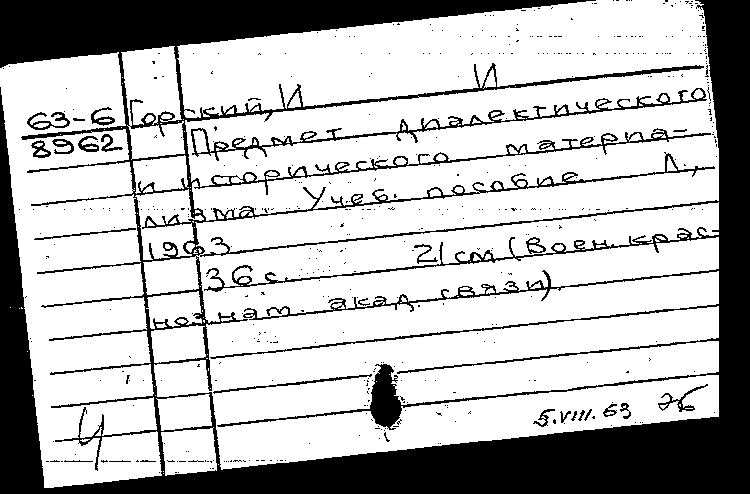 63-6 Горский, И И
8962 Предмет диалектического
и исторического материа-
лизма. Учеб. пособие. Л.,
1963.
36 с. 21 см (Воен. крас-
нознам. акад. связи)
5.VIII.63